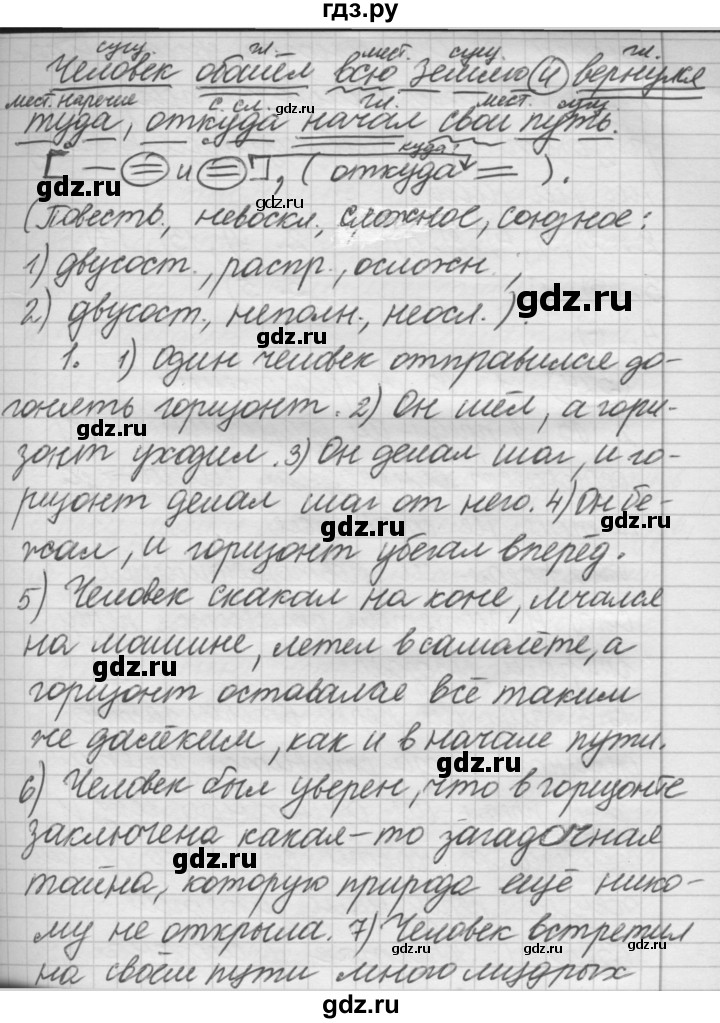 гдз.ру
сущ. гл. мест. сущ. гл.
Человек обошёл всю Землю и вернулся
мест. наречие с. сл. гл. мест. сущ.
туда, откуда начал свой путь.
gdz.ru
куда?
[ — = и = ], ( откуда = ).
gdz.ru
gdz.ru
(Повеств., невоскл., сложное, союзное:
1) двусост., распр., осложн.,
gdz.ru
2) двусост., неполн., неосл.).
gdz.ru
1. 1) Один человек отправился до-
гонять горизонт. 2) Он шёл, а гори-
gdz.ru
зонт уходил. 3) Он делал шаг, и го-
ризонт делал шаг от него. 4) Он бе-
gdz.ru
gdz.ru
жал, и горизонт убегал вперёд.
5) Человек скакал на коне, мчался
на машине, летел в самолёте, а
gdz.ru
горизонт оставался всё таким
же далёким, как и в начале пути.
gdz.ru
6) Человек был уверен, что в горизонте
заключена какая-то загадочная
gdz.ru
тайна, которую природа ещё нико-
му не открыла. 7) Человек встретил
gdz.ru
gdz.ru
на своём пути много мудрых
gdz.ru